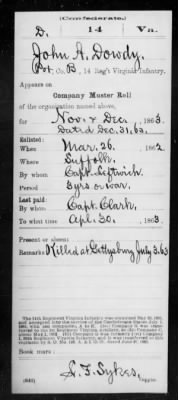 (Confederate.)
D. 14 Va.
John A. Dowdy,
Pvt, Co. B, 14 Reg't Virginia Infantry.
Appears on
Company Muster Roll
of the organization named above,
for Nov. & Dec., 1863.
Dated Dec. 31, 63.
Enlisted:
When Mar. 26, 1862
Where Suffolk.
By whom Capt. Leftwich.
Period 3 yrs or war.
Last paid:
By whom Capt. Clark.
To what time Apl. 30, 1863.
Present or absent
Remarks: Killed at Gettysburg July 3. 63
Book mark:
(642) Copyist.